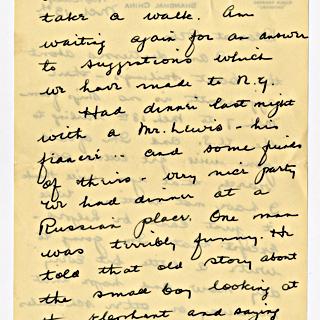 take a walk. Am
waiting again for an answer
to suggestions which
we have made to N.Y.
Had dinner last night
with a Mr. Lewis - his
fianceé - and some friends
of theirs - very nice party
We had dinner at a
Russian place. One man
was terribly funny. He
told that old story about
the small boy looking at
elephant and saying